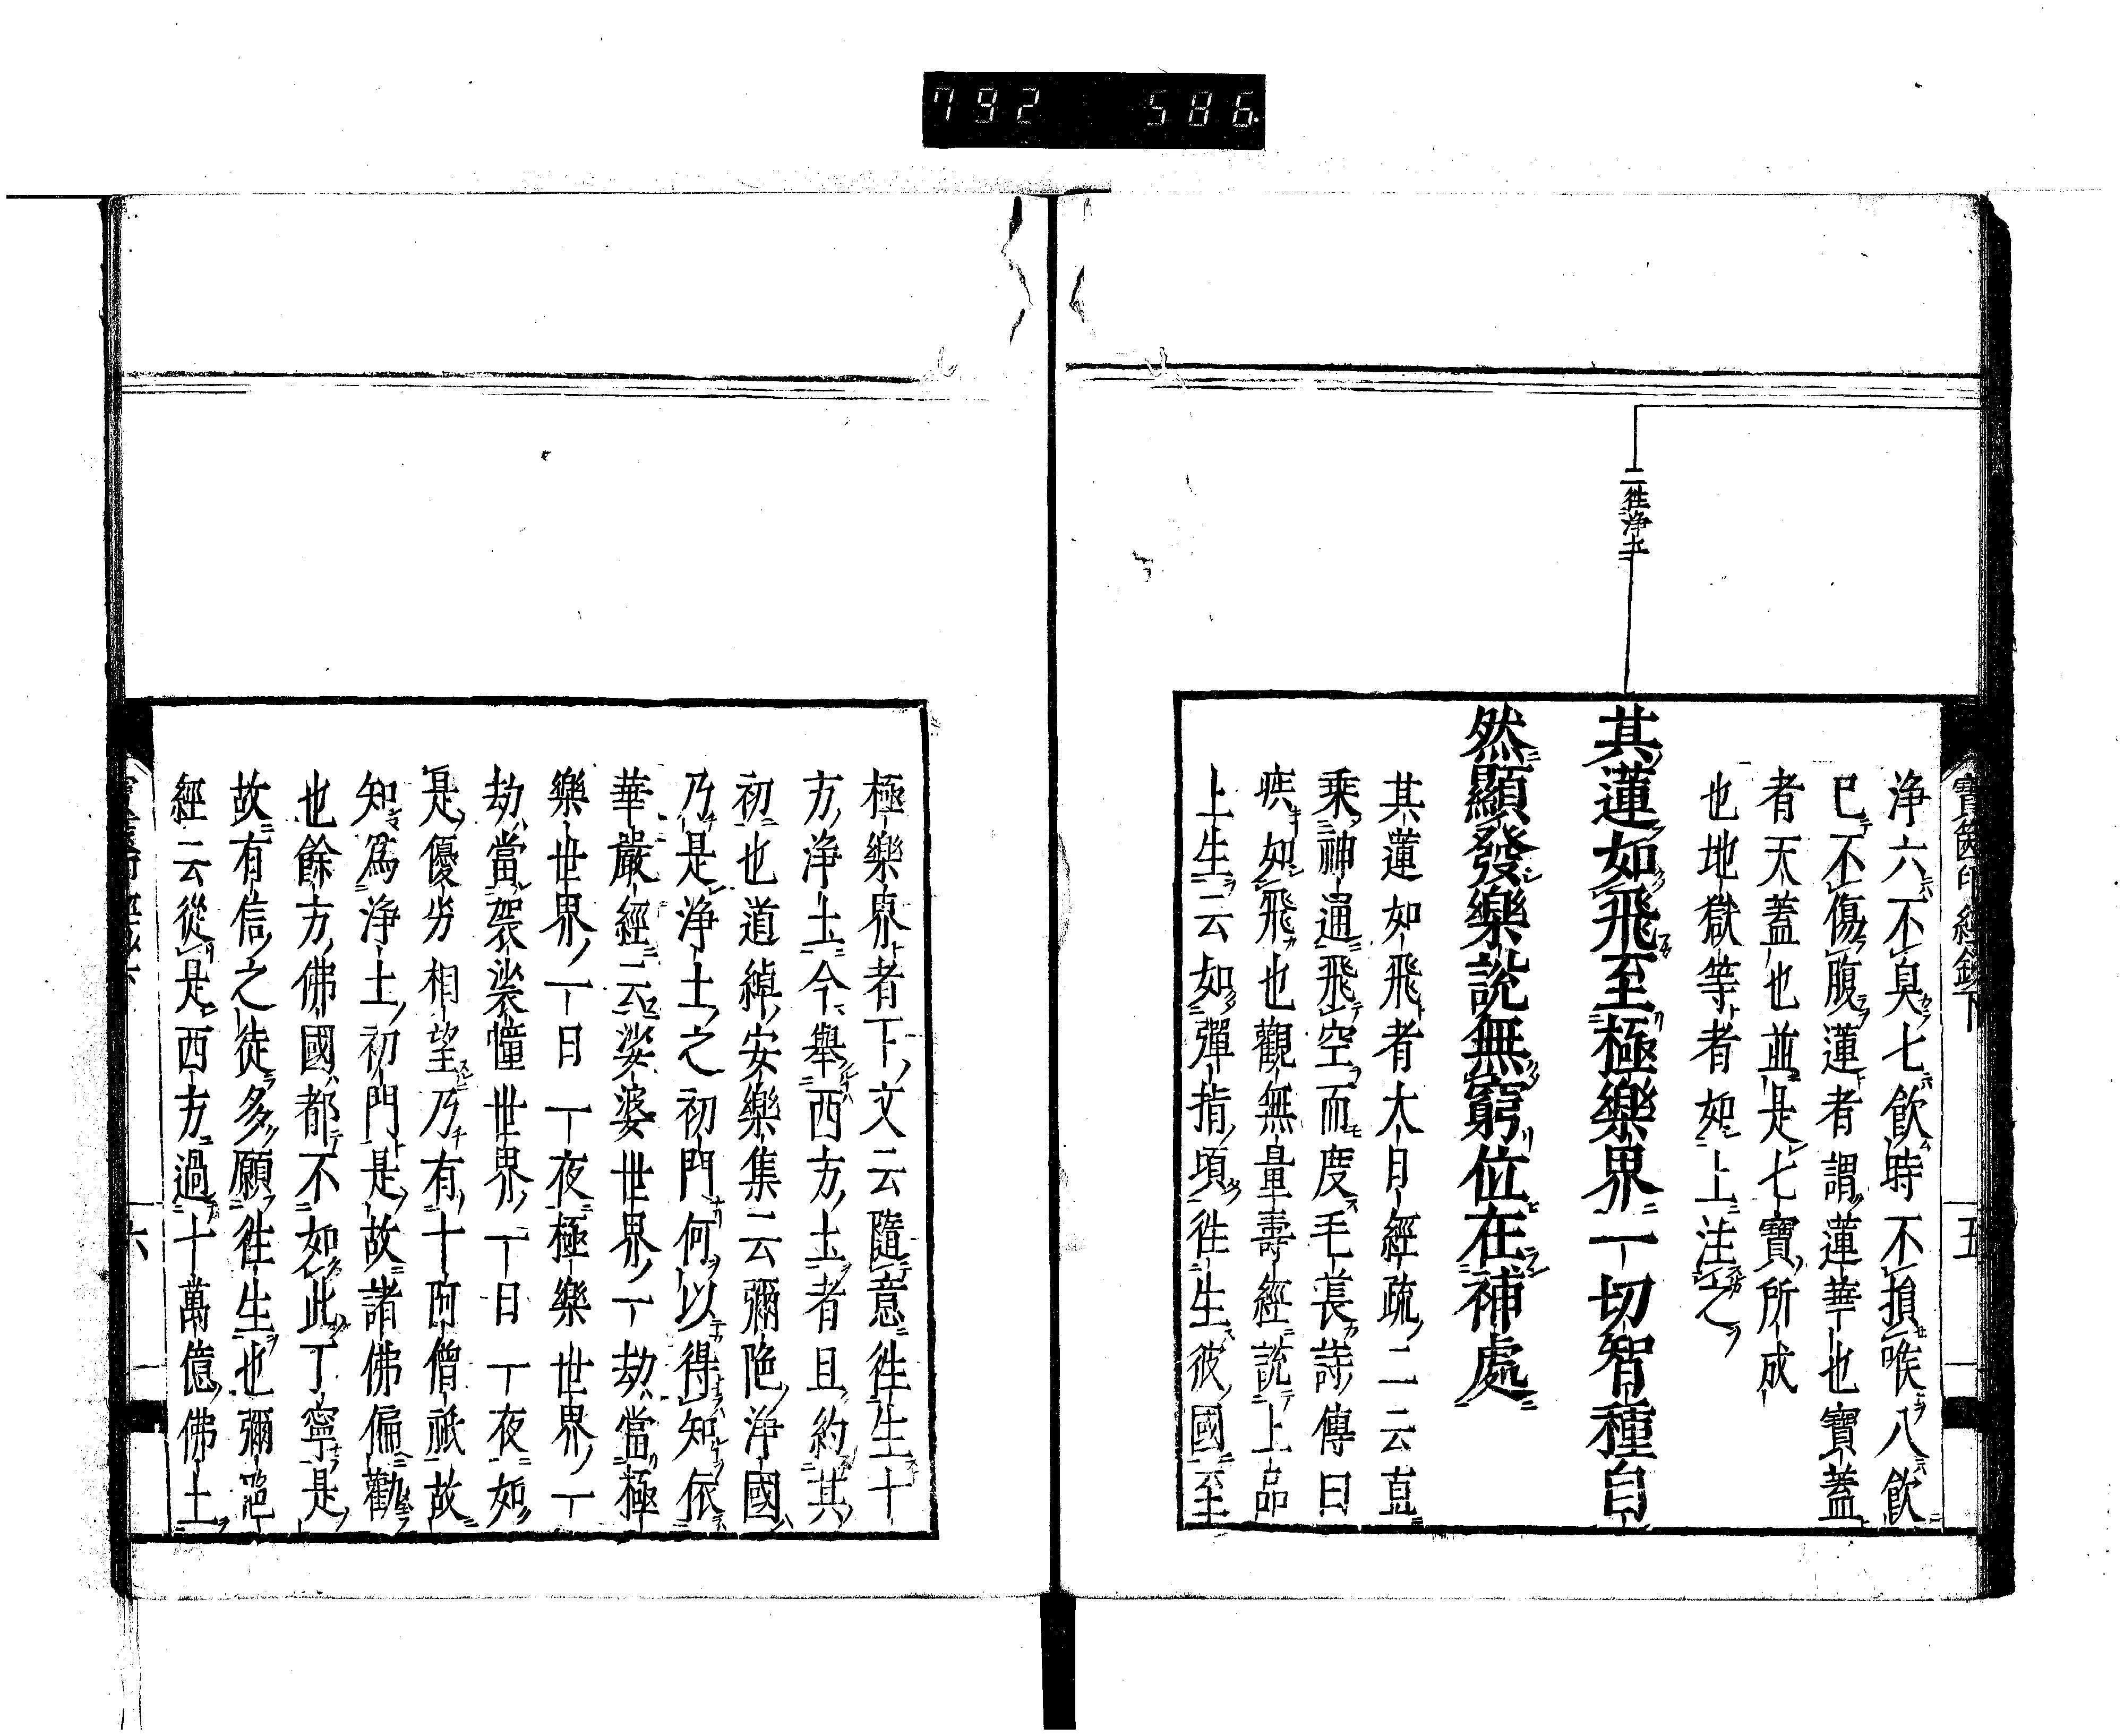 792 586
二徃淨土
寶篋印經鈔下
五
淨六不臭七飲時不損喉八飲
已不傷腹蓮者謂蓮華也寶蓋
者天蓋也並是七寶所成
也地獄等者如上注之
其蓮如飛至極樂界一切智種自
然顯發樂說無窮位在補處
其蓮如飛者大日經疏二云直
乘神通飛空而度毛萇詩傳曰
疾如飛也觀無量壽經說上品
上生云如彈指頃徃生彼國至
極樂界者下文云隨意徃生十
方淨土今舉西方土者且約其
初也道綽安樂集云彌陀淨國
乃是淨土之初門何以得知依
華嚴經云娑婆世界一劫當極
樂世界一日一夜極樂世界一
劫當袈裟幢世界一日一夜如
是優劣相望乃有十阿僧祇故
知爲淨土初門是故諸佛偏勸
也餘方佛國都不如此丁寧是
故有信之徒多願徃生也彌陀
經云從是西方過十萬億佛土
六